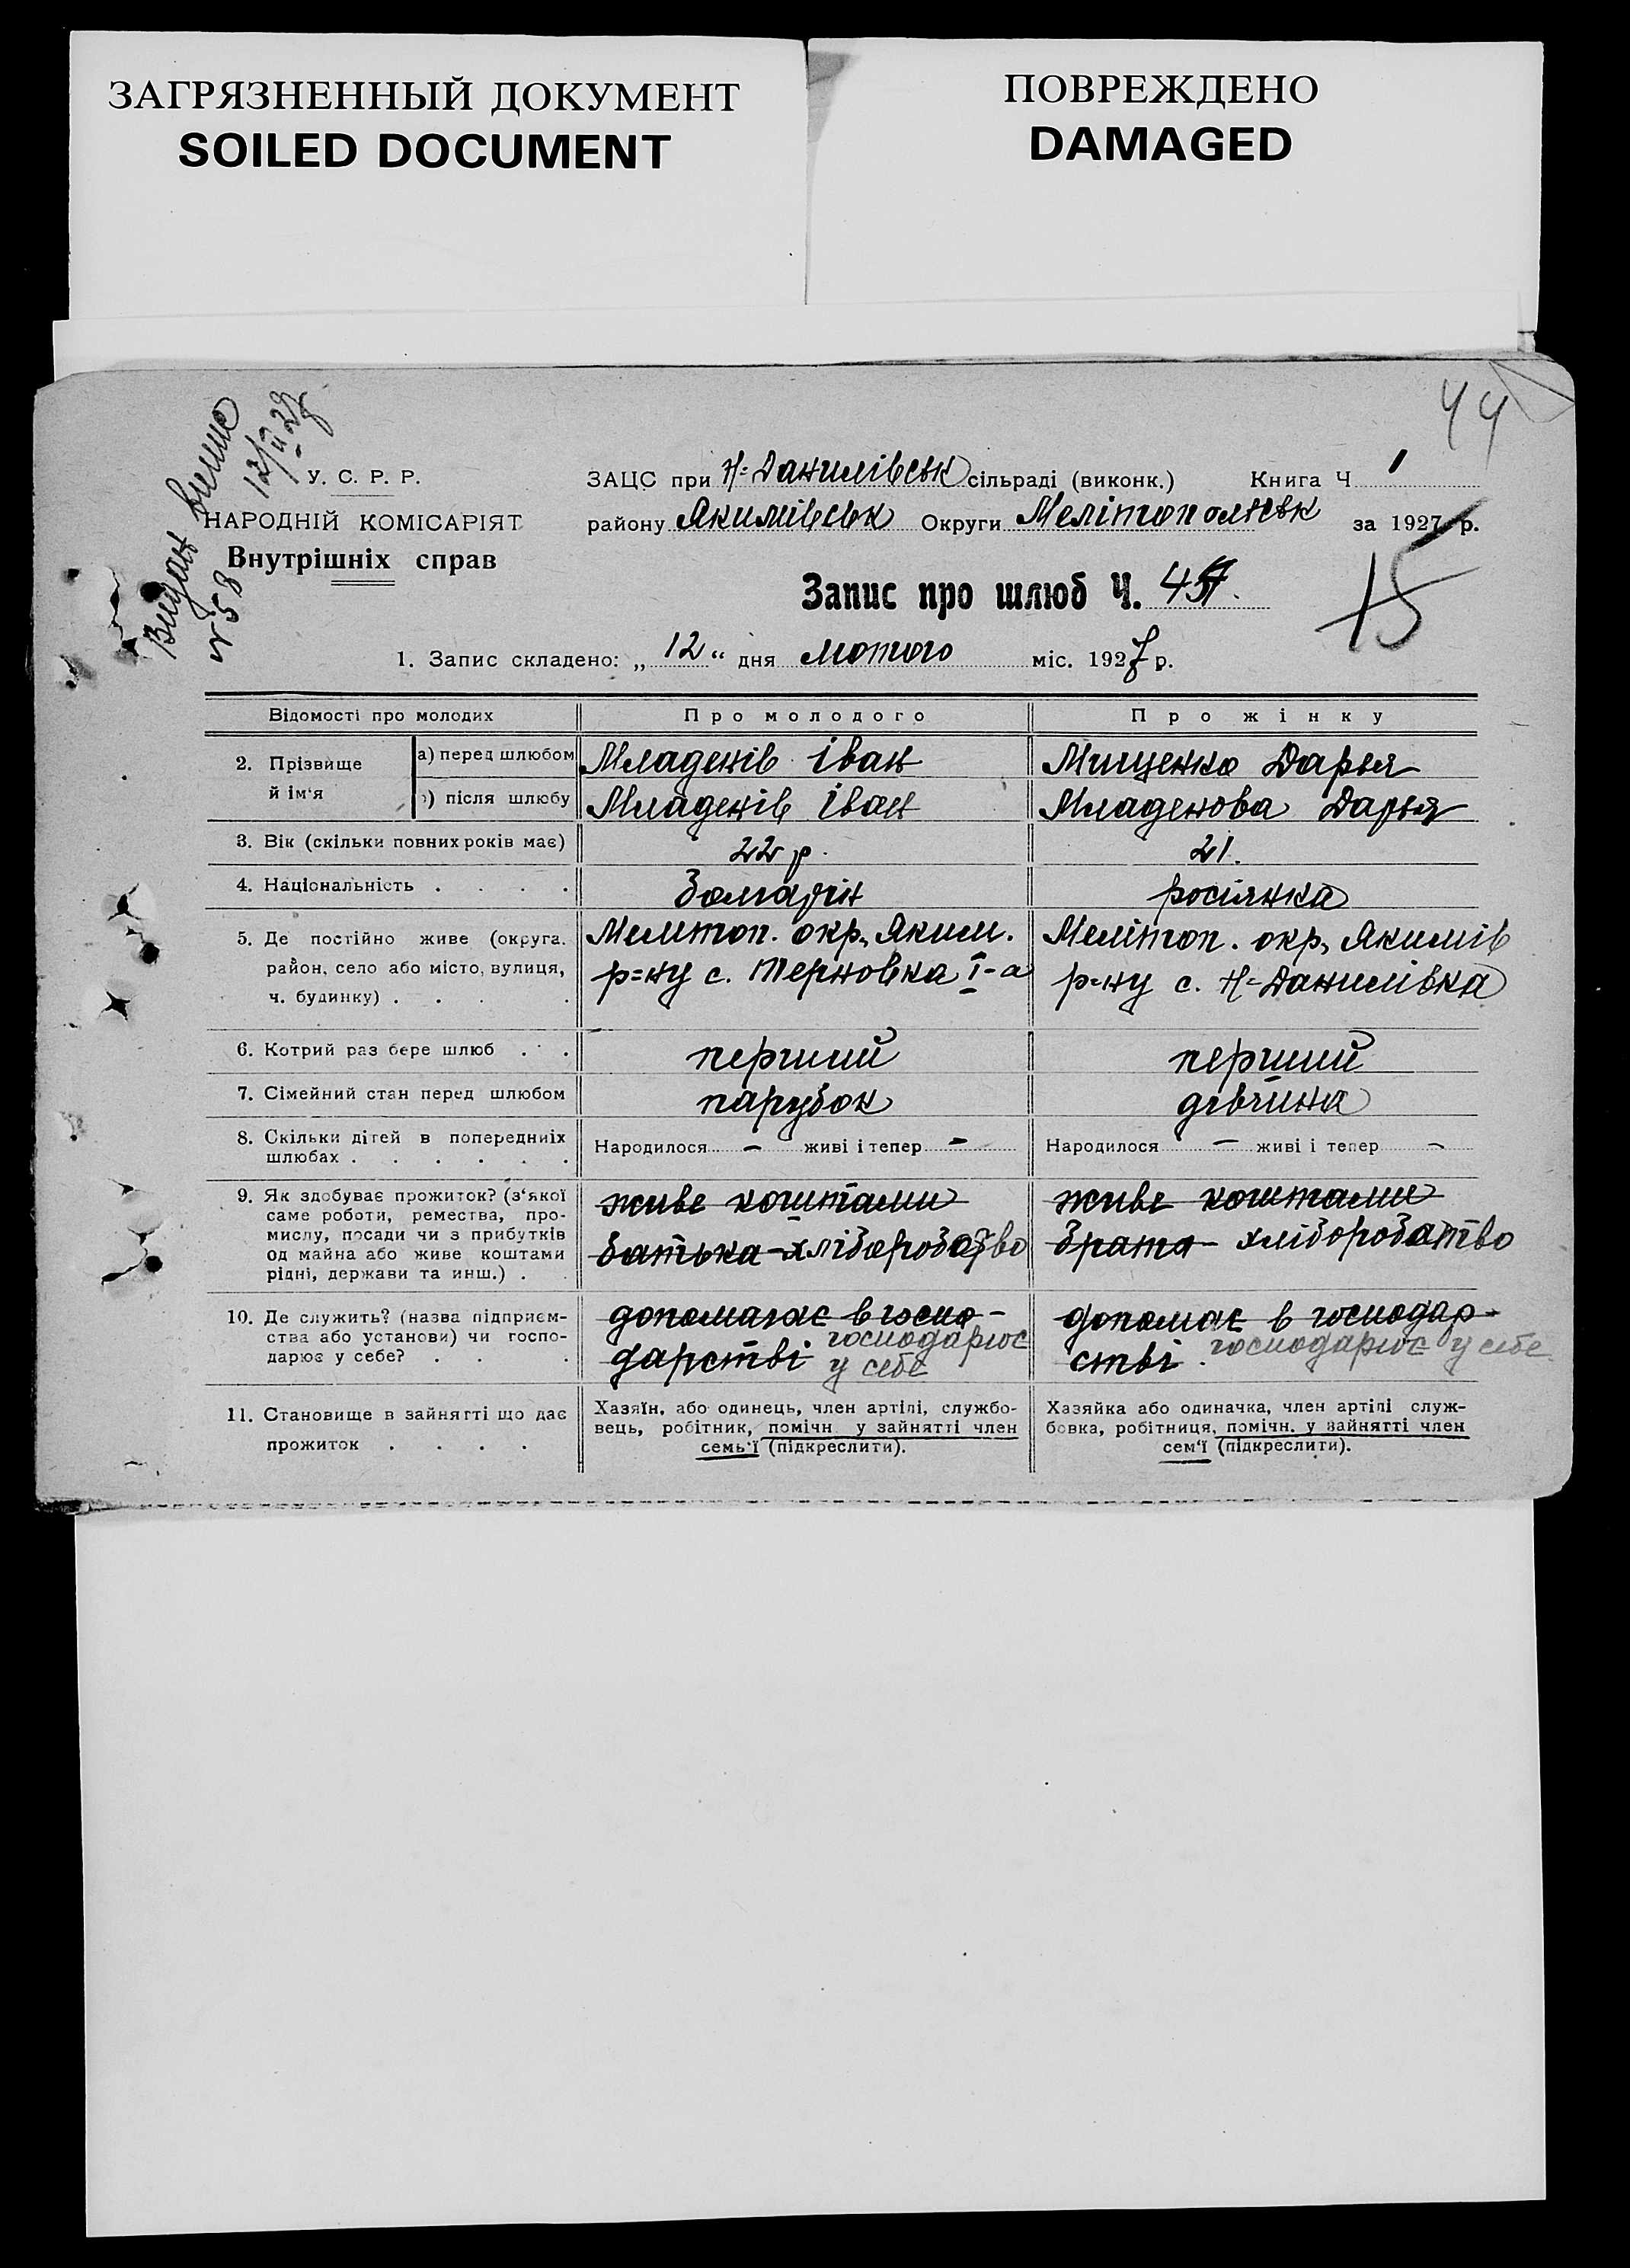 ЗАГРЯЗНЕННЫЙ ДОКУМЕНТ
SOILED DOCUMENT
ПОВРЕЖДЕНО
DAMAGED
44
Видан
№ 58
12/II 27
У. С. Р. Р.
НАРОДНІЙ КОМІСАРІЯТ
Внутрішніх справ
ЗАЦС при Н=Данилівськ сільраді (виконк.) Книга Ч 1
району Якимівськ Округи Мелітопольськ за 1927 р.
Запис про шлюб Ч. 45
15
1. Запис складено: „ 12 “ дня лютого міс. 1927 р.
Відомості про молодих Про молодого Про жінку
2. Прізвище й ім'я а) перед шлюбом Младенів Іван Мищенко Дарья
б) після шлюбу Младенів Іван Младенова Дарья
3. Вік (скільки повних років має) 22 р. 21.
4. Національність . . . . болгарін росіянка
5. Де постійно живе (округа. Мелитоп. окр., Яким. Мелітоп. окр., Якимів
район, село або місто, вулиця, р=ну с. Терновка I-а р=ну с. Н=Данилівка
ч. будинку) . . . .
6. Котрий раз бере шлюб . . перший перший
7. Сімейний стан перед шлюбом парубок дівчина
8. Скільки дітей в попередніх Народилося – живі і тепер – Народилося – живі і тепер –
шлюбах . . . . . .
9. Як здобуває прожиток? (з'якої живе коштами живе коштами
саме роботи, ремества, про-
мислу, посади чи з прибутків батька – хліборобство брата – хліборобатво
од майна або живе коштами
рідні, держави та инш.) . .
10. Де служить? (назва підприєм- допомагає в госпо- допомає в господар-
ства або установи) чи госпо- дарстві господарює стві. господарює у себе
дарює у себе? . . . у себе
11. Становище в зайнятті що дає Хазяїн, або одинець, член артілі, службо- Хазяйка або одиначка, член артілі служ-
вець, робітник, помічн. у зайнятті член бовка, робітниця, помічн. у зайнятті член
прожиток . . . . семь'ї (підкреслити). сем'ї (підкреслити).